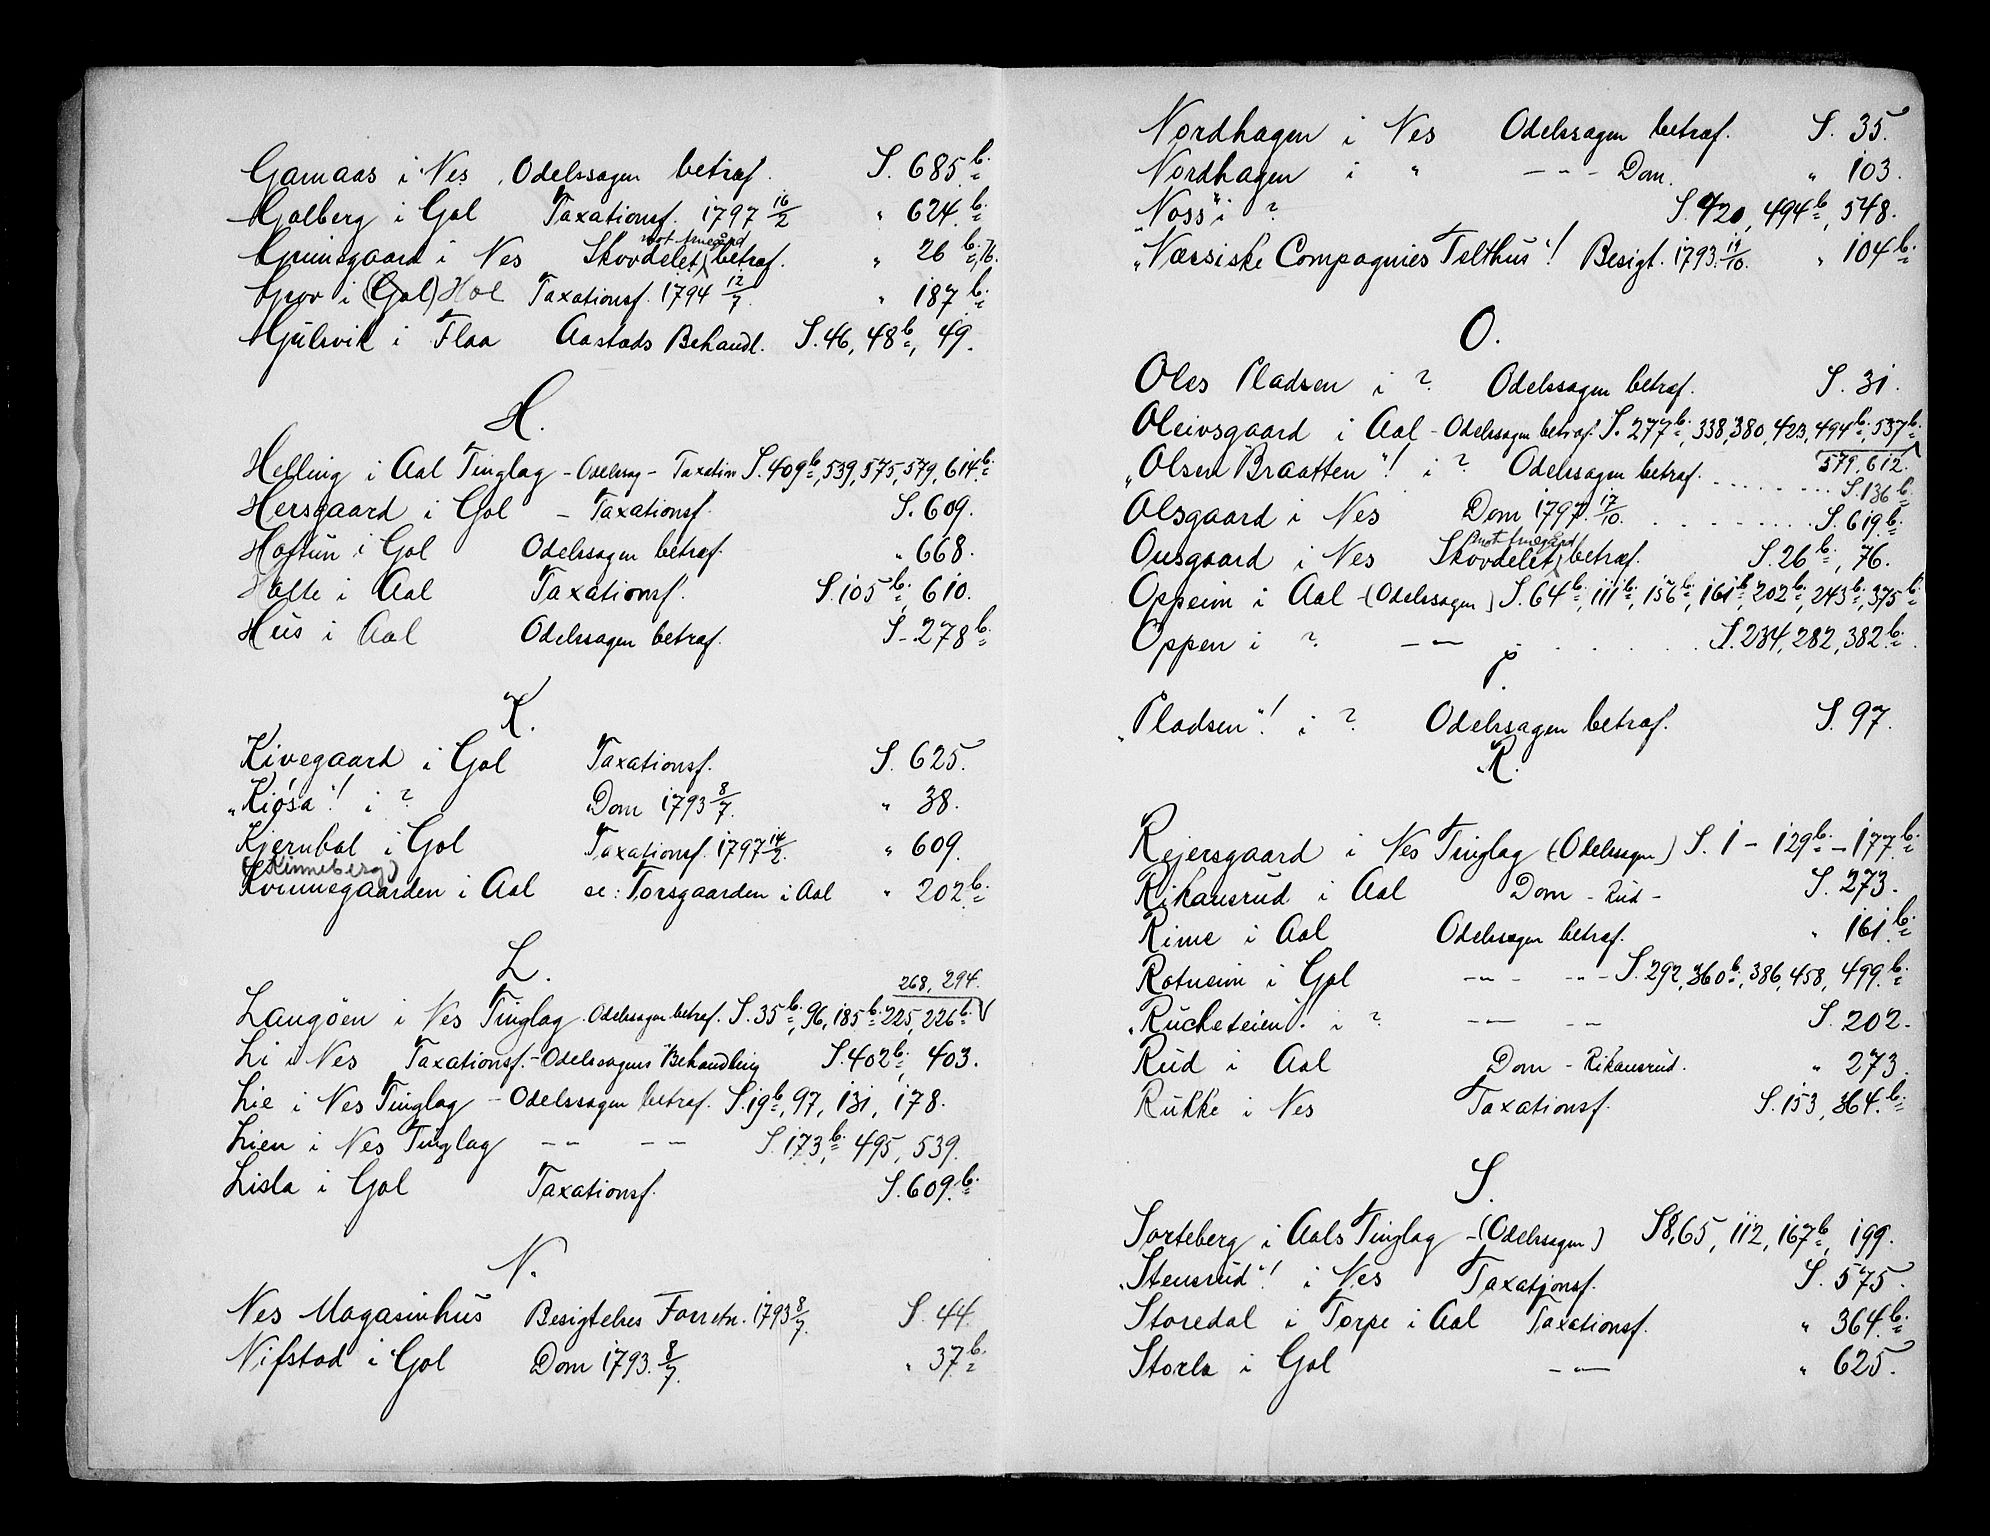 Garnaas i Nes. Odelssagen betræf. S. 685 b.
Golberg i Gol Taxationsf. 1797 16/2 " 624 b.
mot frægård
Grimsgaard i Nes Skovdelet, betræf. " 26 b., 76.
Grov i (Gol) Hol Taxationsf. 1794 12/7. " 187 b.
Gjulsvik i Flaa Aastæds Behandl. S. 46, 48 b., 49.
H.
Helling i Aal Tinglag - Odelssag - Taxation S. 409 b., 539, 575, 579, 614 b.
Hersgaard i Gol - Taxationsf. S. 609.
Hoftun i Gol Odelssagen betræf. " 668.
Holte i Aal Taxationsf. S. 105 b., 610.
Hus i Aal Odelssagen betræf. S - 278 b.
K.
Kivegaard i Gol Taxationsf. S. 625.
"Kiøsa"! i ? Dom 1793 8/7. " 38.
Kjernbøl i Gol Taxationsf. 1797 14/2. " 609.
(Kinneberg)
Kvinnegaarden i Aal se: Torsgaarden i Aal " 202 b.
L.
268, 294.
Langøen i Nes Tinglag. Odelssagen betræf. S. 35 b., 96, 185 b. 225, 226 b. V
Li i Nes Taxationsf. - Odelssagens Behandling S. 402 b., 403.
Lie i Nes Tinglag - Odelssagen betræf. S. 19 b., 97, 131, 178.
Lien i Nes Tinglag - - - - S. 173 b., 495, 539.
Lisla i Gol Taxationsf. S. 609 b.
N.
Nes Magasinhus Besigtelses Forretn. 1793 8/7. S. 44.
Nifstad i Gol Dom 1793. 8/7. " 37 b.
Nordhagen i Nes Odelssagen betræf. S. 35.
Nordhagen i " - - - Dom. " 103.
"Noss" i ? S. 420, 494 b., 548.
"Næssiske Compagnies Telthus"! Besigt. 1793. 19/10. " 104 b.
O.
Oles Pladsen i ? Odelssagen betræf. S. 31.
Oleivsgaard i Aal - Odelssagen betræf. S. 277 b., 338, 380, 423, 494 b., 537 b.
579, 612.
"Olsen Braatten"! i ? Odelssagen betræf. . . . . . . S. 136 b.
Olsgaard i Nes Dom 1797. 17/10. . . . . . . . S. 619 b.
mot frægård
Onsgaard i Nes Skovdelet, betræf. S. 26 b., 76.
Oppeim i Aal - (Odelssagen) S. 64 b., 111 b., 156 b., 161 b., 202 b., 243 b., 375 b.
Oppen i ? - - . . . . S. 234, 282, 382 b.
P.
"Pladsen"! i ? Odelssagen betræf. S. 97.
R.
Rejersgaard i Nes Tinglag (Odelssagen) S. 1 - 129 b. - 177 b.
Rikansrud i Aal Dom - Rud - S. 273.
Rime i Aal Odelssagen betræf. " 161 b.
Rotneim i Gol - - - - - - S. 292, 360 b., 386, 458, 499 b.
"Rucheteien! i ? - - - - S. 202.
Rud i Aal Dom - Rikansrud. " 273.
Rukke i Nes Taxationsf. S. 153, 364 b.
S.
Sorteberg i Aals Tinglag - (Odelssagen) S 8, 65, 112, 167 b., 199.
"Stensrud"! i Nes Taxationsf. S. 575.
Storedal i Torpe i Aal Taxationsf. " 364 b.
Storla i Gol - - " 625.